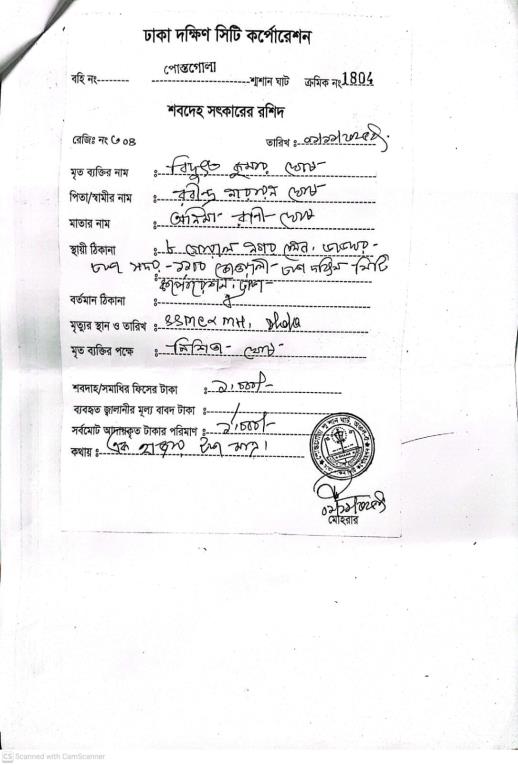 ঢাকা দক্ষিণ সিটি কর্পোরেশন
পোস্তগোলা
বহি নং-------- --------------------শ্মশান ঘাট ক্রমিক নং 1804
শবদেহ সৎকারের রশিদ
রেজিঃ নং ৩০৪ তারিখ ঃ
মৃত ব্যক্তির নাম ঃ বিদ্যুৎ কুমার ঘোষ
পিতা/স্বামীর নাম ঃ রবীন্দ্র নারায়ন ঘোষ
মাতার নাম ঃ অনিমা রানী ঘোষ
স্থায়ী ঠিকানা ঃ ৮
ঢাকা সদর -১১০০ কোতোয়ালী- ঢাকা দক্ষিণ সিটি
কর্পোরেশন, ঢাকা-
বর্তমান ঠিকানা ঃ
মৃত্যুর স্থান ও তারিখ ঃ SSMC & MH,
মৃত ব্যক্তির পক্ষে ঃ ঘোষ-
শবদাহ/সমাধির ফিসের টাকা ঃ ১,০০০/-
ব্যবহৃত জ্বালানীর মূল্য বাবদ টাকা ঃ
সর্বমোট আদায়কৃত টাকার পরিমাণ ঃ ১,০০০/-
কথায় ঃ এক হাজার টাকা মাত্র।
মোহরার
CS Scanned with CamScanner